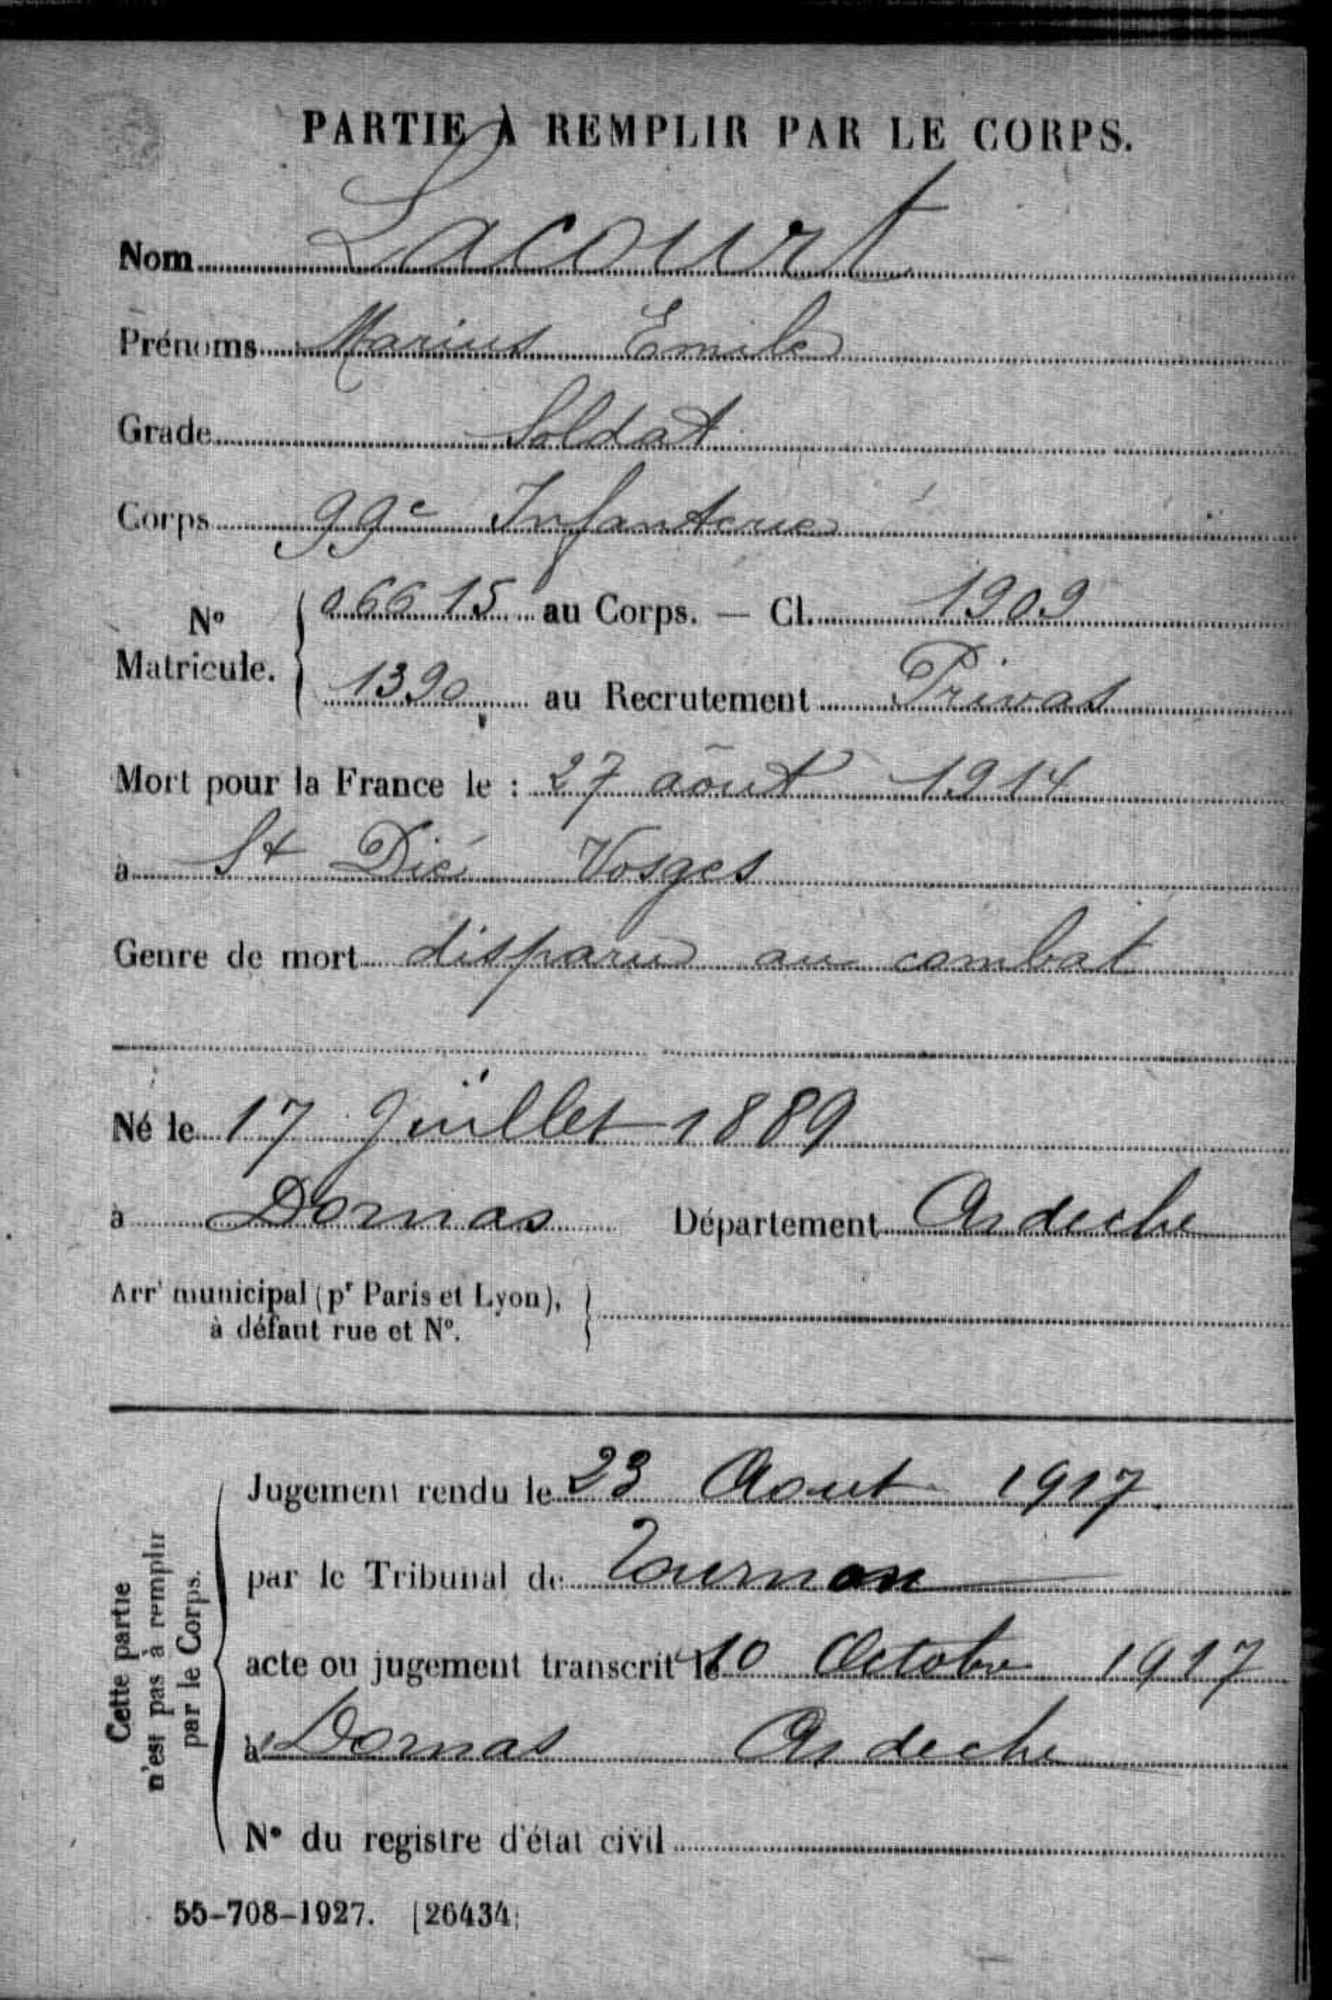 PARTIE À REMPLIR PAR LE CORPS.
Nom Lacourt
Prénoms Marius Emile
Grade Soldat
Corps 99e Infanterie
No Matricule. { 06615 au Corps. — Cl. 1909
1390 au Recrutement Privas
Mort pour la France le : 27 août 1914
à St Dié Vosges
Genre de mort disparu au combat
Né le 17 Juillet 1889
à Dornas Département Ardeche
Arrt municipal (pr Paris et Lyon), }
à défaut rue et No.
Cette partie
n'est pas à remplir
par le Corps.
Jugement rendu le 23 Aout 1917.
par le Tribunal de Tournon
acte ou jugement transcrit le 10 Octobre 1917
à Dornas Ardeche
No du registre d'état civil
55-708-1927. [26434]